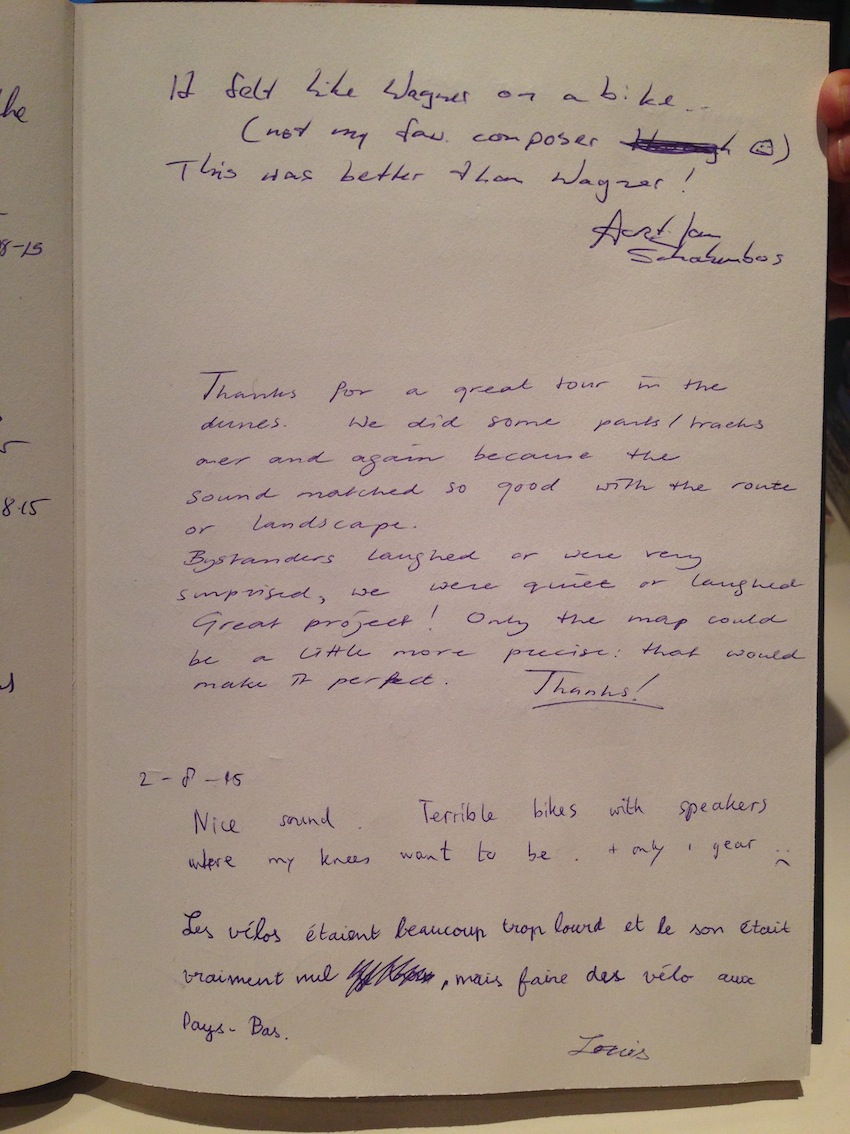 he
8-15
5
8.15
It felt like Wagner on a bike..
(not my fav. composer ☺)
This was better than Wagner!
Aart Jan
Thanks for a great tour in the
dunes. We did some parts/tracks
over and again because the
sound matched so good with the route
or landscape.
Bystanders laughed or were very
surprised, we were quiet or laughed
Great project! Only the map could
be a little more precise: that would
make it perfect. Thanks!
2-8-15
Nice sound. Terrible bikes with speakers
where my knees want to be. + only 1 gear :(
Les vélos étaient beaucoup trop lourd et le son était
vraiment nul, mais faire des vélo aux
Pays-Bas.
Louis